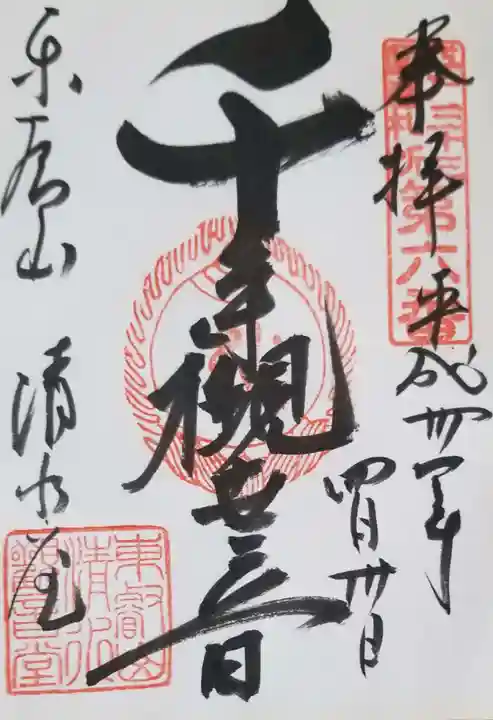 奉拝
平成卅年
四月卅日
第六番
千手観世音
東叡山 清水堂
東叡山
清水
観音堂